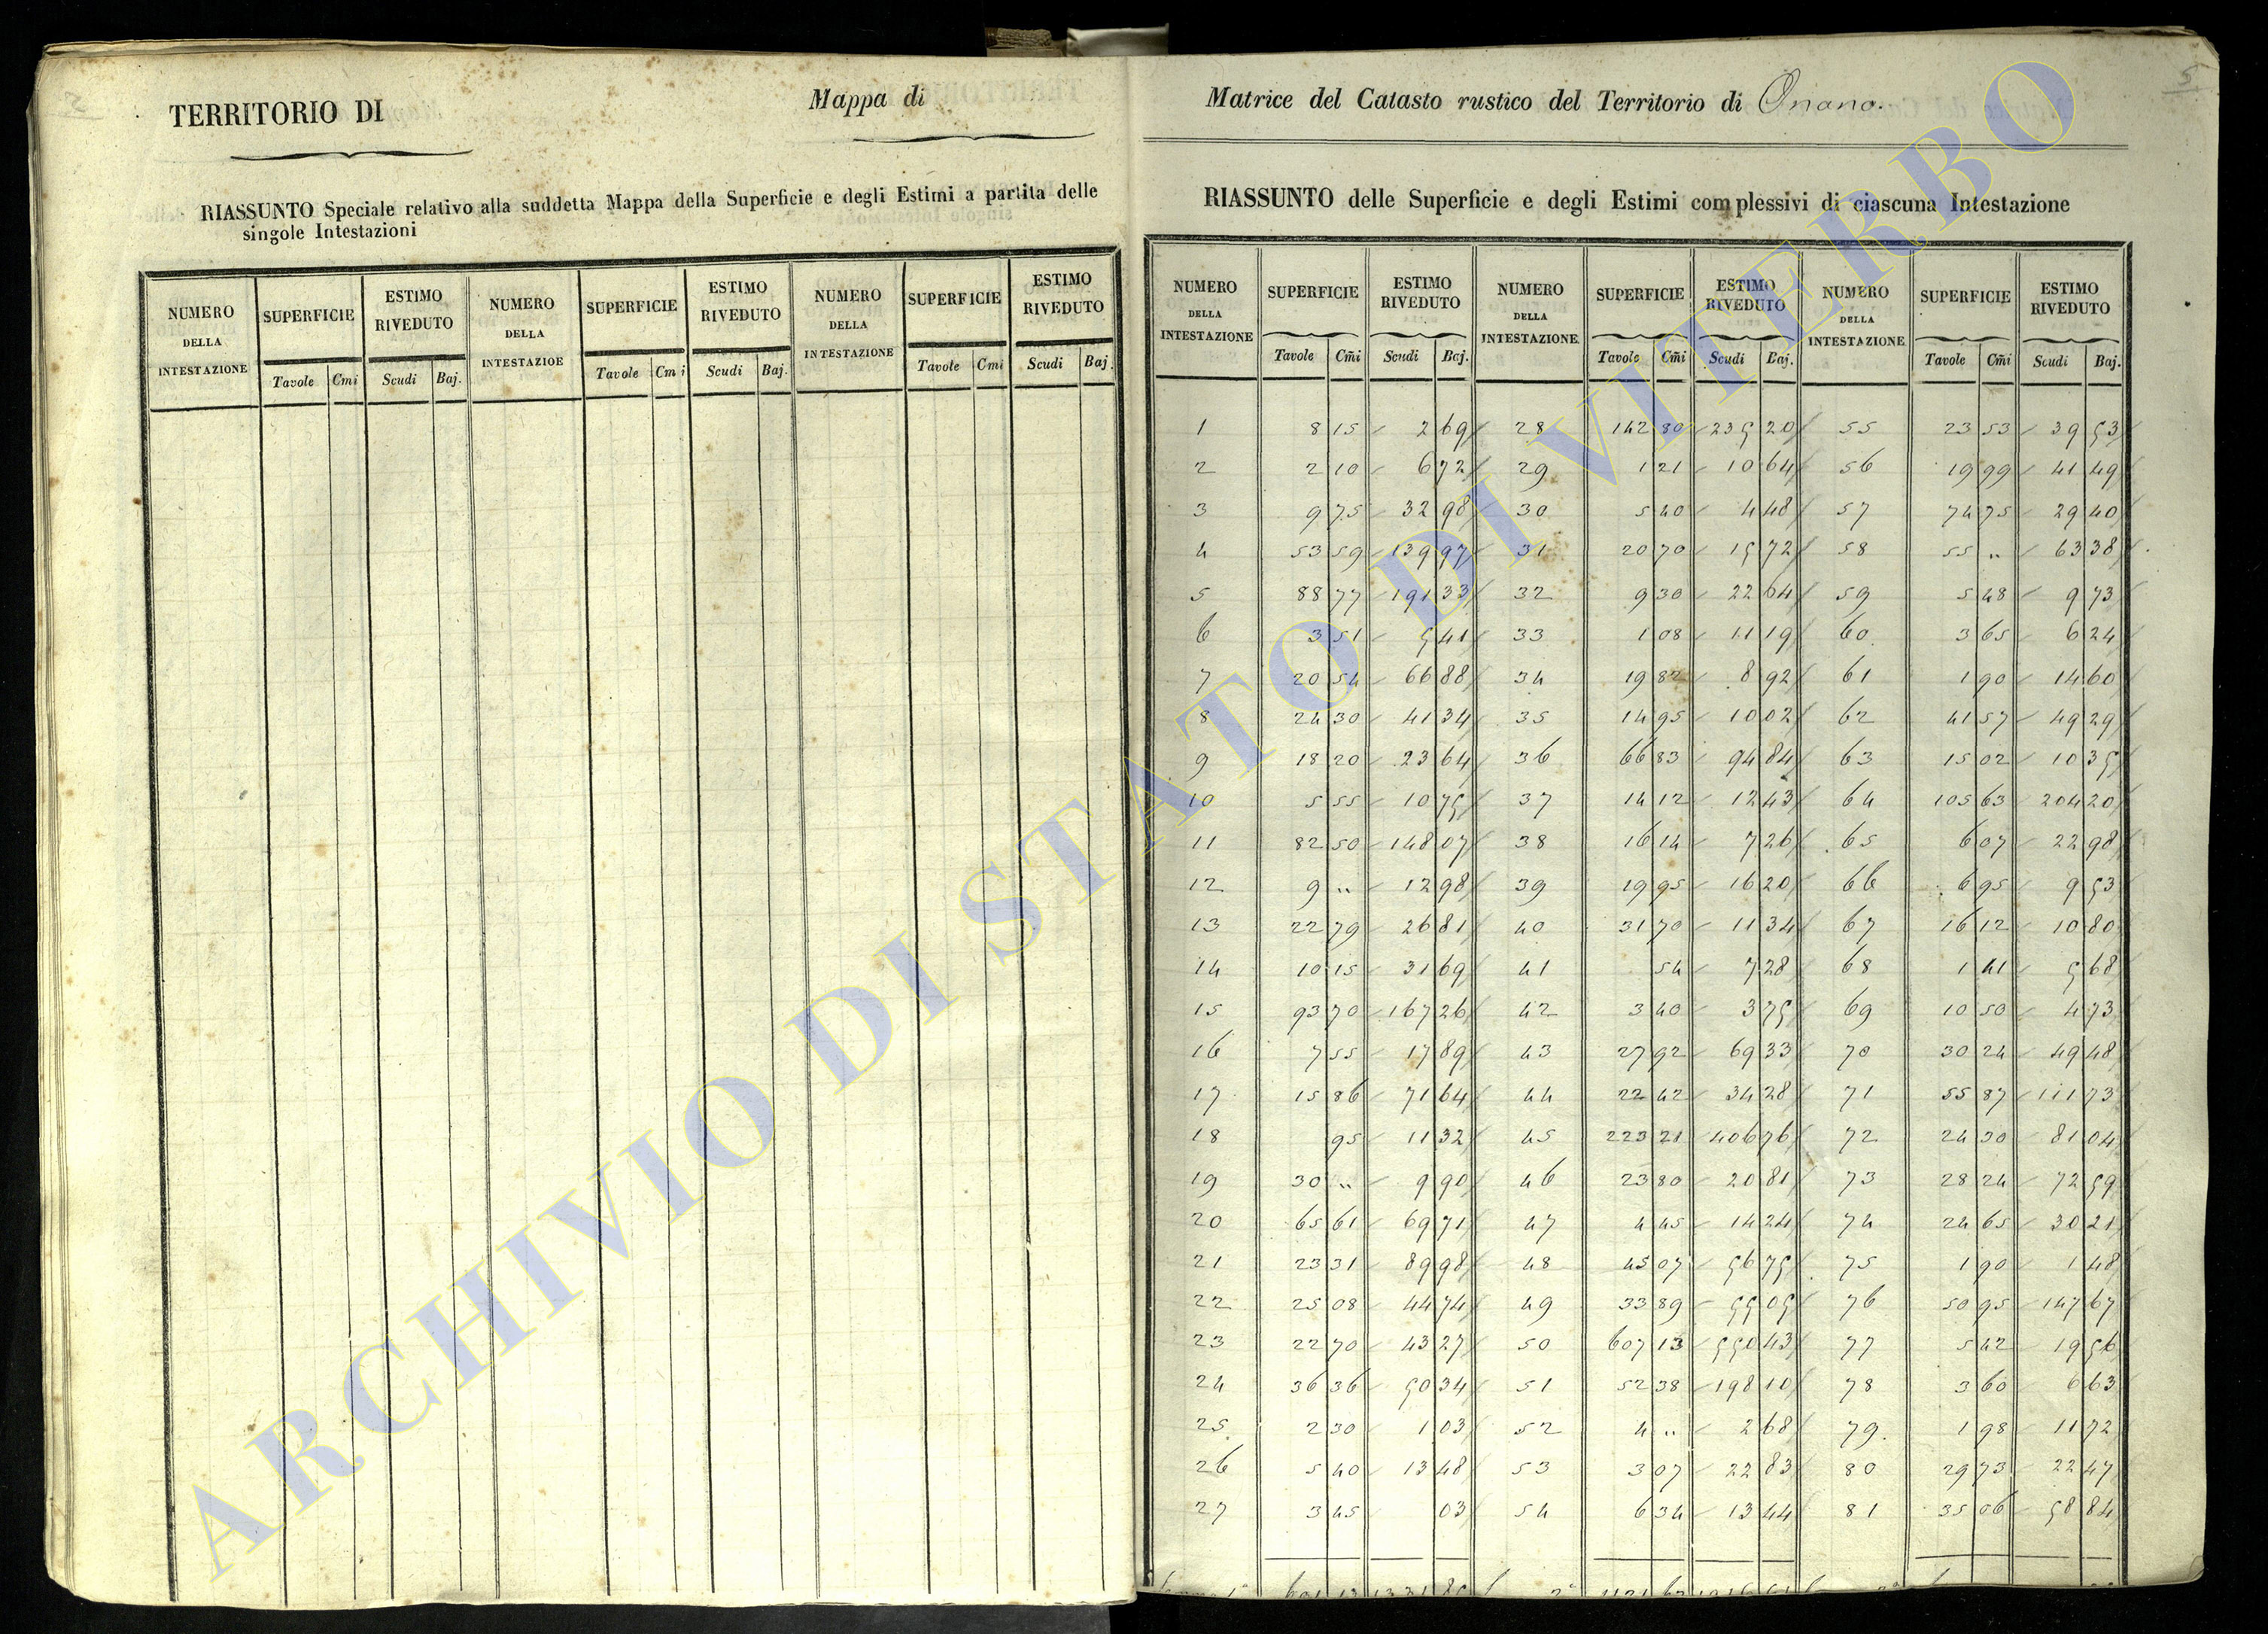 2
TERRITORIO DI
Mappa di
RIASSUNTO Speciale relativo alla suddetta Mappa della Superficie e degli Estimi a partita delle
singole Intestazioni
NUMERO DELLA INTESTAZIONE SUPERFICIE ESTIMO RIVEDUTO NUMERO DELLA INTESTAZIOE SUPERFICIE ESTIMO RIVEDUTO NUMERO DELLA INTESTAZIONE SUPERFICIE ESTIMO RIVEDUTO
Tavole Cmi Scudi Baj. Tavole Cmi Scudi Baj. Tavole Cmi Scudi Baj.
5
Matrice del Catasto rustico del Territorio di Onano.
RIASSUNTO delle Superficie e degli Estimi complessivi di ciascuna Intestazione
NUMERO DELLA INTESTAZIONE SUPERFICIE ESTIMO RIVEDUTO NUMERO DELLA INTESTAZIONE SUPERFICIE ESTIMO RIVEDUTO NUMERO DELLA INTESTAZIONE SUPERFICIE ESTIMO RIVEDUTO
Tavole Cmi Scudi Baj. Tavole Cmi Scudi Baj. Tavole Cmi Scudi Baj.
1 8 15 2 69 28 142 80 235 20 55 23 53 39 53
2 2 10 6 72 29 1 21 10 64 56 19 99 41 49
3 9 75 32 98 30 5 40 4 48 57 74 75 29 40
4 53 59 139 97 31 20 70 15 72 58 55 " 63 38
5 88 77 191 33 32 9 30 22 64 59 5 48 9 73
6 3 51 5 41 33 1 08 11 19 60 3 65 6 24
7 20 54 66 88 34 19 82 8 92 61 1 90 14 60
8 24 30 41 34 35 14 95 10 02 62 41 57 49 29
9 18 20 23 64 36 66 83 94 84 63 15 02 10 35
10 5 55 10 75 37 14 12 12 43 64 105 63 204 20
11 82 50 148 07 38 16 14 7 26 65 6 07 22 98
12 9 " 12 98 39 19 95 16 20 66 6 95 9 53
13 22 79 26 81 40 31 70 11 34 67 16 12 10 80
14 10 15 31 69 41 54 7 28 68 1 41 5 68
15 93 70 167 26 42 3 40 3 75 69 10 50 4 73
16 7 55 17 89 43 27 92 69 33 70 30 24 49 48
17 15 86 71 64 44 22 42 34 28 71 55 87 111 73
18 95 11 32 45 223 21 406 76 72 24 30 81 04
19 30 " 9 90 46 23 80 20 81 73 28 24 72 59
20 65 61 69 71 47 4 45 14 24 74 24 65 30 21
21 23 31 89 98 48 45 07 56 75 75 1 90 1 48
22 25 08 44 74 49 33 89 55 05 76 50 95 147 67
23 22 70 43 27 50 607 13 550 43 77 5 42 19 56
24 36 36 50 34 51 52 38 198 10 78 3 60 6 63
25 2 30 1 03 52 4 " 2 68 79 1 98 11 72
26 5 40 13 48 53 3 07 22 83 80 29 73 22 47
27 3 45 03 54 6 34 13 44 81 35 06 58 84
ARCHIVIO DI STATO DI VITERBO